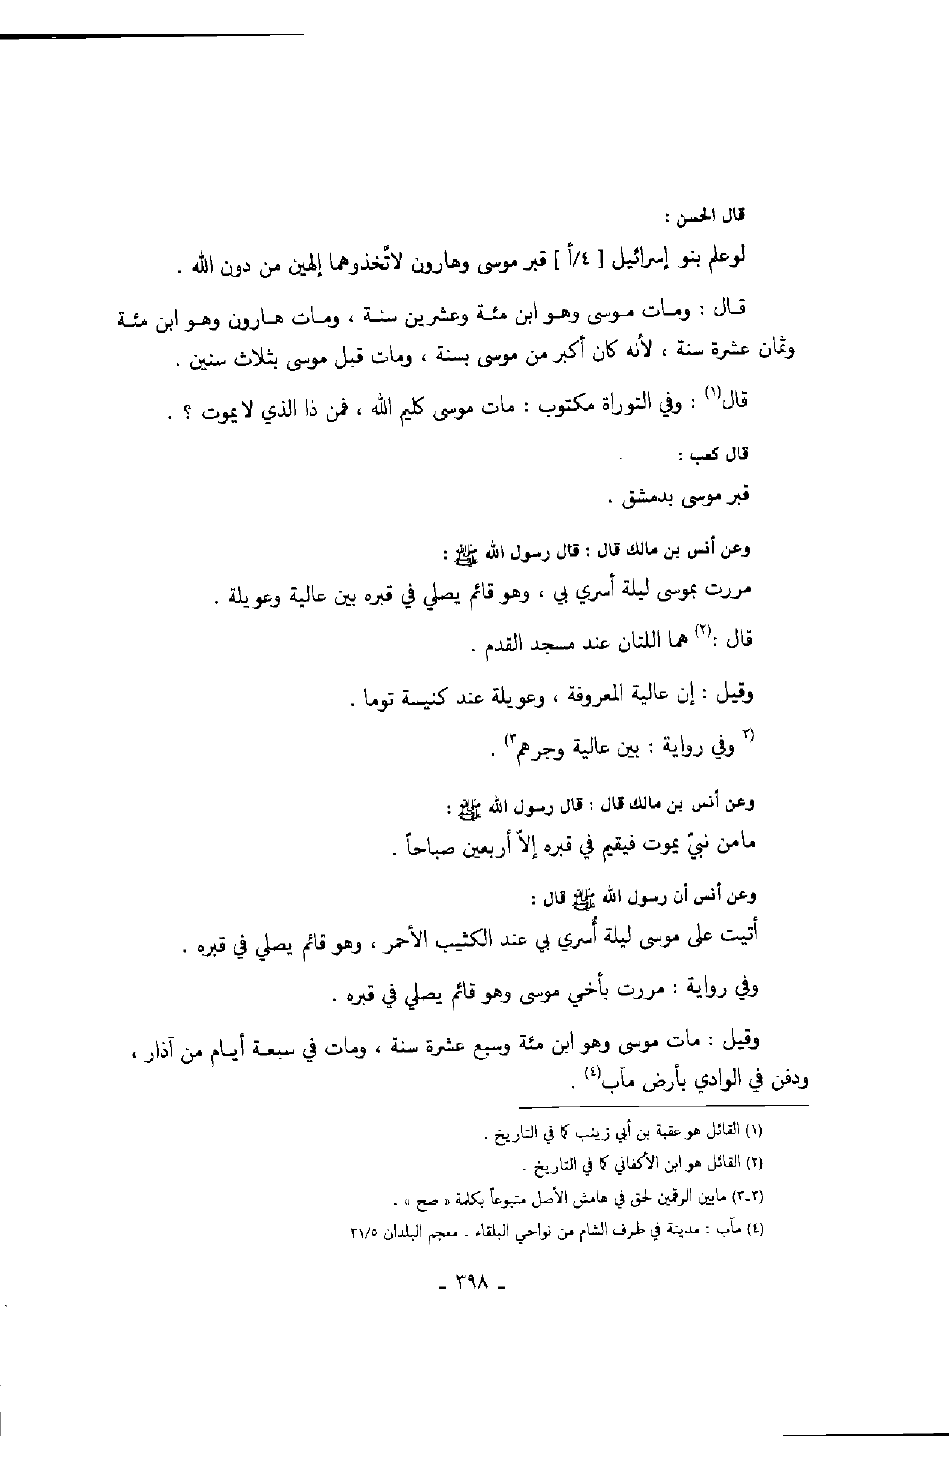 قال الحسن :
لوعلم بنو إسرائيل [ ٤/أ ] قبر موسى وهارون لاتَّخذوهما إلهين من دون الله .
قال : ومات موسى وهو ابن مئة وعشرين سنة ، ومات هارون وهو ابن مئة
وثمان عشرة سنة ، لأنه كان أكبر من موسى بسنة ، ومات قبل موسى بثلاث سنين .
قال(١) : وفي التوراة مكتوب : مات موسى كليم الله ، فمن ذا الذي لايموت ؟ .
قال كعب :
قبر موسى بدمشق .
وعن أنس بن مالك قال : قال رسول الله ﷺ :
مررت بموسى ليلة أسري بي ، وهو قائم يصلي في قبره بين عالية وعويلة .
قال :(٢) هما اللتان عند مسجد القدم .
وقيل : إن عالية المعروفة ، وعويلة عند كنيسة توما .
(٣ وفي رواية : بين عالية وجرهم٣) .
وعن أنس بن مالك قال : قال رسول الله ﷺ :
مامن نبيّ يموت فيقيم في قبره إلاّ أربعين صباحاً .
وعن أنس أن رسول الله ﷺ قال :
أتيت على موسى ليلة أُسري بي عند الكثيب الأحمر ، وهو قائم يصلي في قبره .
وفي رواية : مررت بأخي موسى وهو قائم يصلي في قبره .
وقيل : مات موسى وهو ابن مئة وسبع عشرة سنة ، ومات في سبعة أيام من آذار ،
ودفن في الوادي بأرض مآب(٤) .
(١) القائل هو عقبة بن أبي زينب كما في التاريخ .
(٢) القائل هو ابن الأكفاني كما في التاريخ .
(٣-٣) مابين الرقمين لحق في هامش الأصل متبوعاً بكلمة « صح » .
(٤) مآب : مدينة في طرف الشام من نواحي البلقاء . معجم البلدان ٣١/٥
- ٣٩٨ -